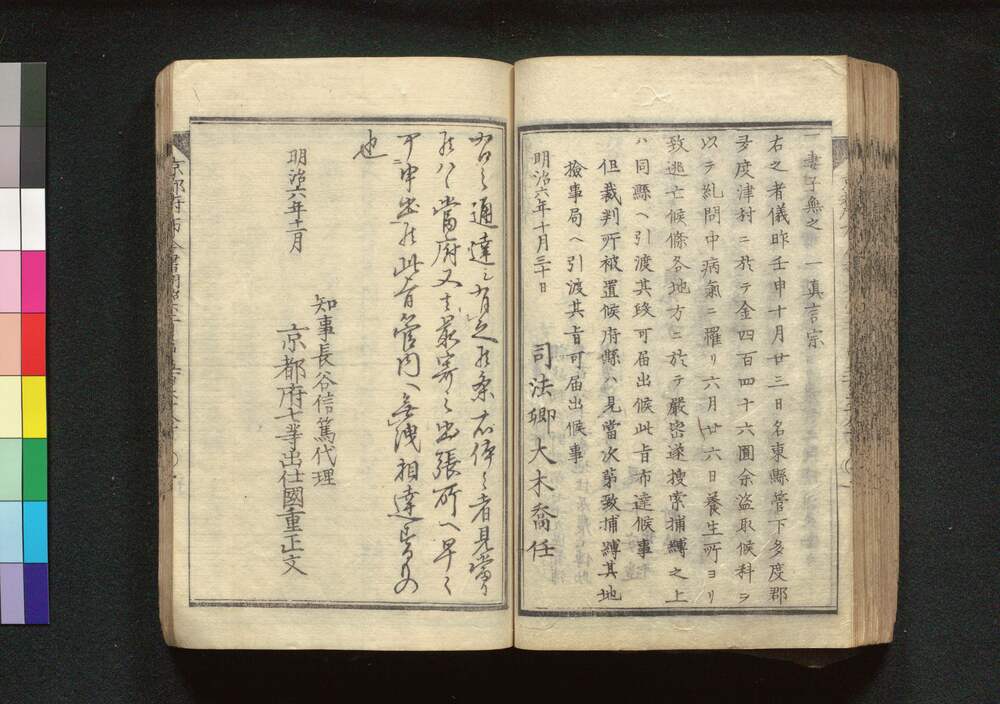 一妻子無之 一真言宗
右之者儀昨壬申十月廿三日名東縣管下多度郡
多度津村ニ於テ金四百四十六圓余盗取候科ヲ
以テ糺問中病氣ニ罹リ六月廿六日養生所ヨリ
致逃亡候條各地方ニ於テ嚴密遂搜索捕縛之上
ハ同縣ヘ引渡其段可届出候此旨布達候事
但裁判所被置候府縣ハ見當次第致捕縛其地
撿事局ヘ引渡其旨可届出候事
明治六年十月三十日
司法卿大木喬任
右之通達之有之候条右体之者見當
候ハヽ當府又ハ最寄之出張所ヘ早々
可申出候此旨管内ヘ無洩相達するもの
也
明治六年十一月
知事長谷信篤代理
京都府七等出仕國重正文